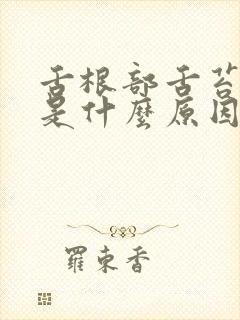 舌根部舌苔
是什麼原因
羅東香